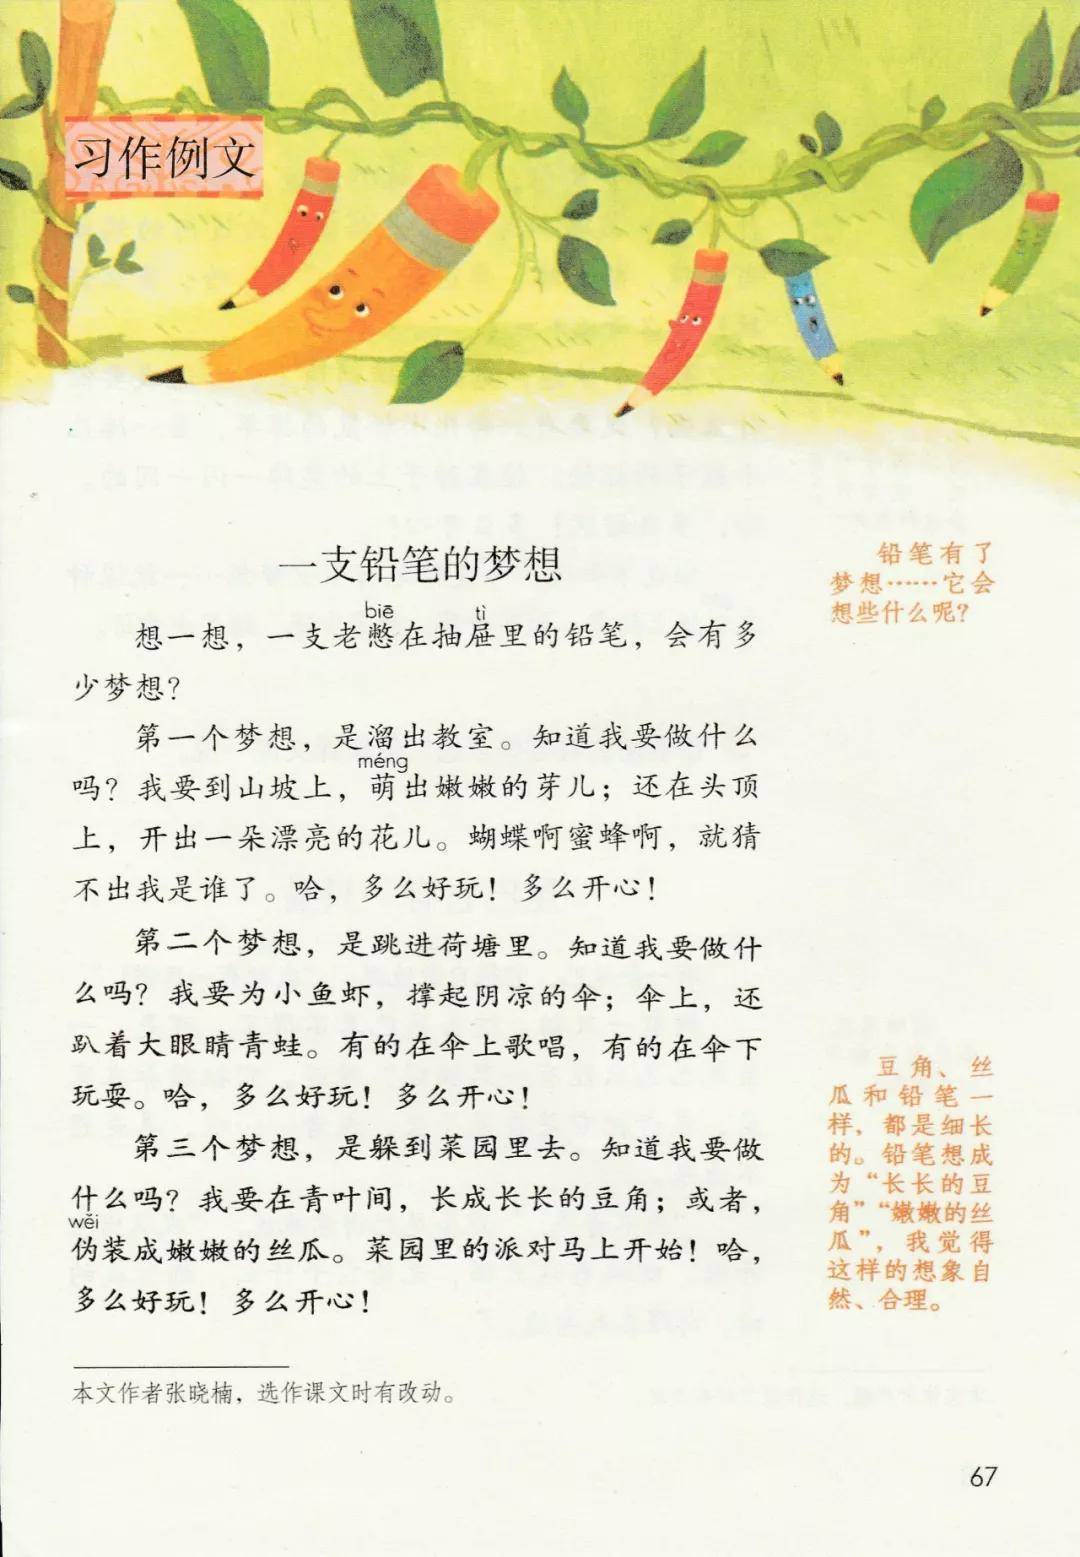 习作例文
一支铅笔的梦想
铅笔有了
梦想……它会
想些什么呢？
biē tì
想一想，一支老憋在抽屉里的铅笔，会有多
少梦想？
第一个梦想，是溜出教室。知道我要做什么
méng
吗？我要到山坡上，萌出嫩嫩的芽儿；还在头顶
上，开出一朵漂亮的花儿。蝴蝶啊蜜蜂啊，就猜
不出我是谁了。哈，多么好玩！多么开心！
第二个梦想，是跳进荷塘里。知道我要做什
么吗？我要为小鱼虾，撑起阴凉的伞；伞上，还
趴着大眼睛青蛙。有的在伞上歌唱，有的在伞下
玩耍。哈，多么好玩！多么开心！
第三个梦想，是躲到菜园里去。知道我要做
什么吗？我要在青叶间，长成长长的豆角；或者，
wěi
伪装成嫩嫩的丝瓜。菜园里的派对马上开始！哈，
多么好玩！多么开心！
豆角、丝
瓜和铅笔一
样，都是细长
的。铅笔想成
为“长长的豆
角”“嫩嫩的丝
瓜”，我觉得
这样的想象自
然、合理。
本文作者张晓楠，选作课文时有改动。
67